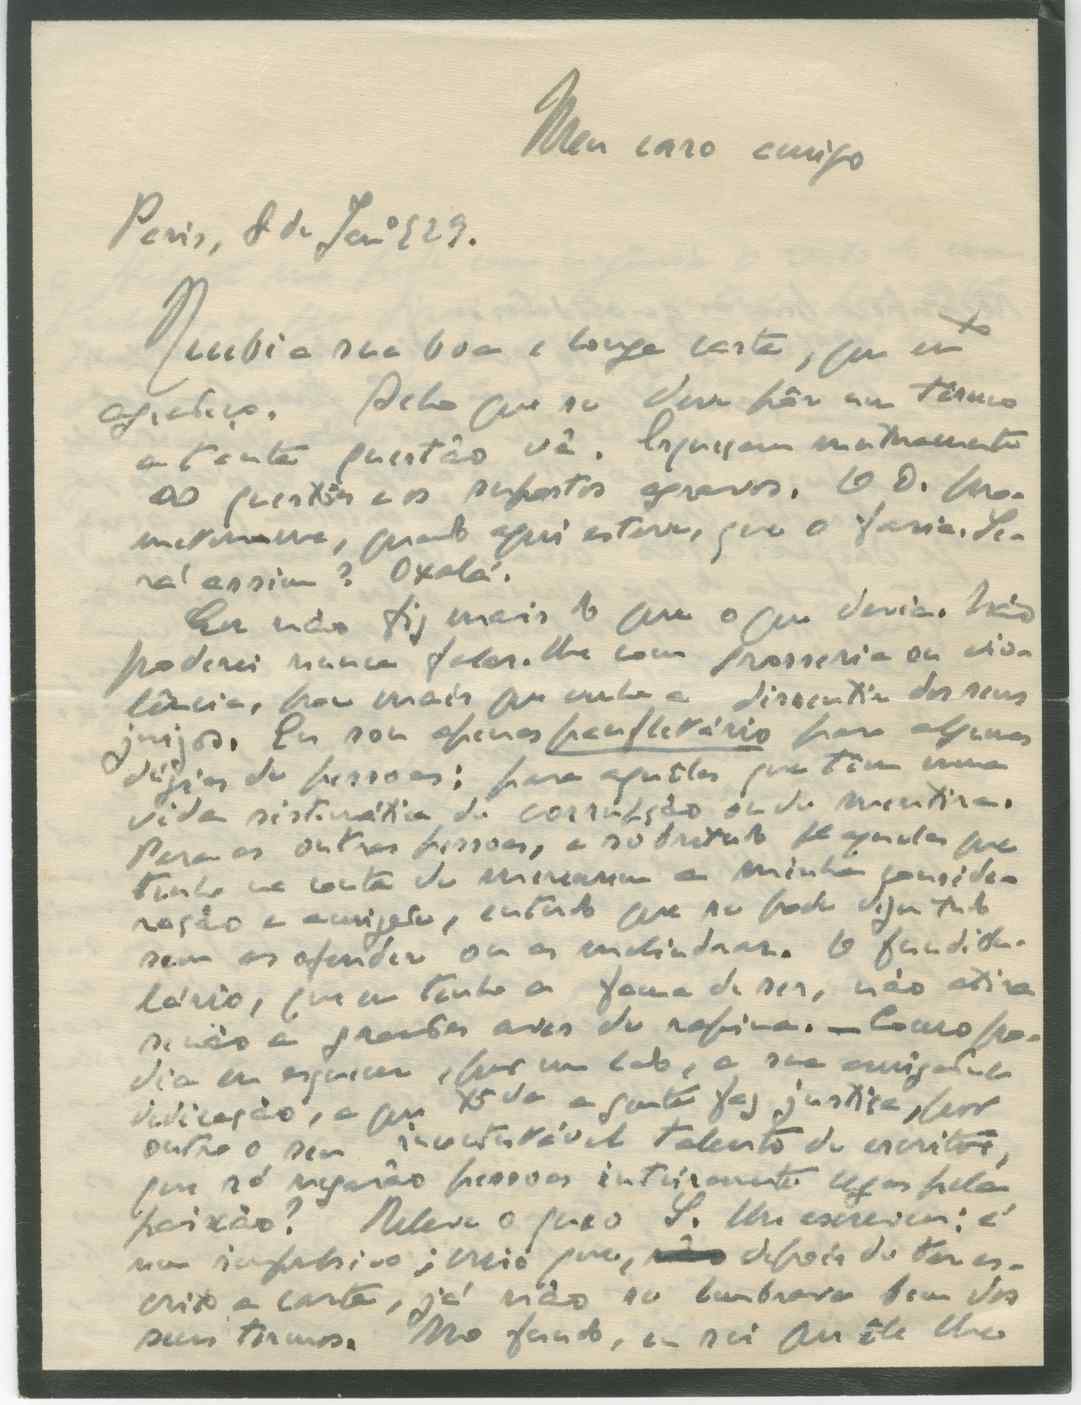 Meu caro amigo
Paris, 8 de Jan.º 929.
Recebi a sua boa e longa carta, que eu
agradeço. Acho que se deve pôr um têrmo
a tanta questão vã. Esqueçam mutuamente
as questões e os supostos agravos. O D. pro-
meteu-me, quando aqui esteve, que o faria. Se-
rá assim? Oxalá.
Eu não fiz mais do que o que devia. Não
poderei nunca falar-lhe com grosseria ou vio-
lência, por mais que venha a dissentir dos seus
juizos. Eu sou apenas panfletário para algumas
dúzias de pessoas; para aquêles que têm uma
vida sistemática de corrupção ou de mentira.
Para as outras pessoas, e sobretudo para aquelas que
tenho na conta de merecerem a minha conside-
ração e amizade, entendo que se pode dizer tudo
sem as ofender ou as melindrar. O fundibu-
lário, que eu tenho a fama de ser, não atira
senão a grandes aves de rapina. — Como po-
dia eu esquecer, por um lado, a sua amizade e
dedicação, a que tôda a gente faz justiça, por
outro o seu incontestável talento de escritor,
que só negarão pessoas inteiramente cegas pela
paixão? Releve o que o S. lhe escreveu: é
um impulsivo; creio que, depois de ter es-
crito a carta, já não se lembrava bem dos
seus termos. No fundo, eu sei que êle lhe